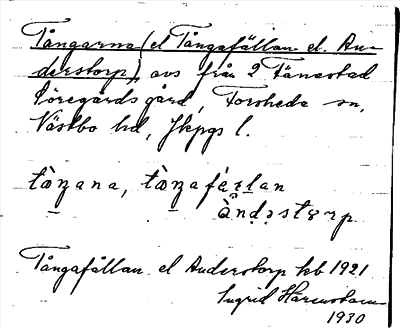 Tångarna (el Tångafällan el. An-
derstorp), avs från 2 Tånnestad
Söregårds gård, Forsheda sn,
Västbo hd, Jkpgs l.
tàŋana, tàŋafæḷan
ànḍəstorp
Tångafällan el Anderstorp kb 1921
Ingrid
1930